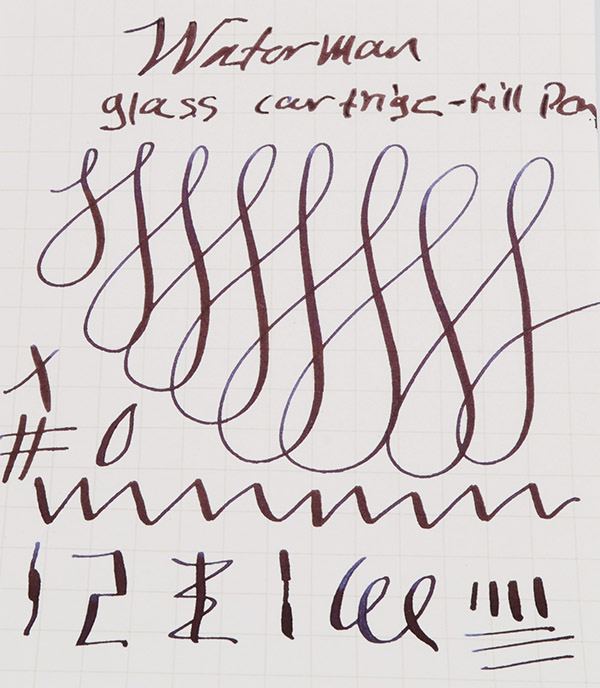 Waterman
glass cartrige-fill Pen
x
# 0